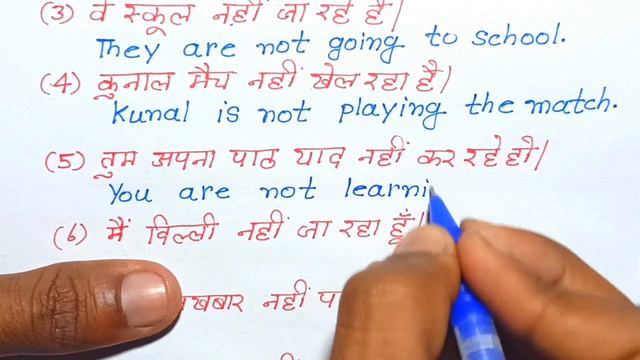 (3) वे स्कूल नहीं जा रहे हैं|
They are not going to school.
(4) कुनाल मैच नहीं खेल रहा है|
Kunal is not playing the match.
(5) तुम अपना पाठ याद नहीं कर रहे हो|
You are not learni
(6) मैं दिल्ली नहीं जा रहा हूँ|
नहीं